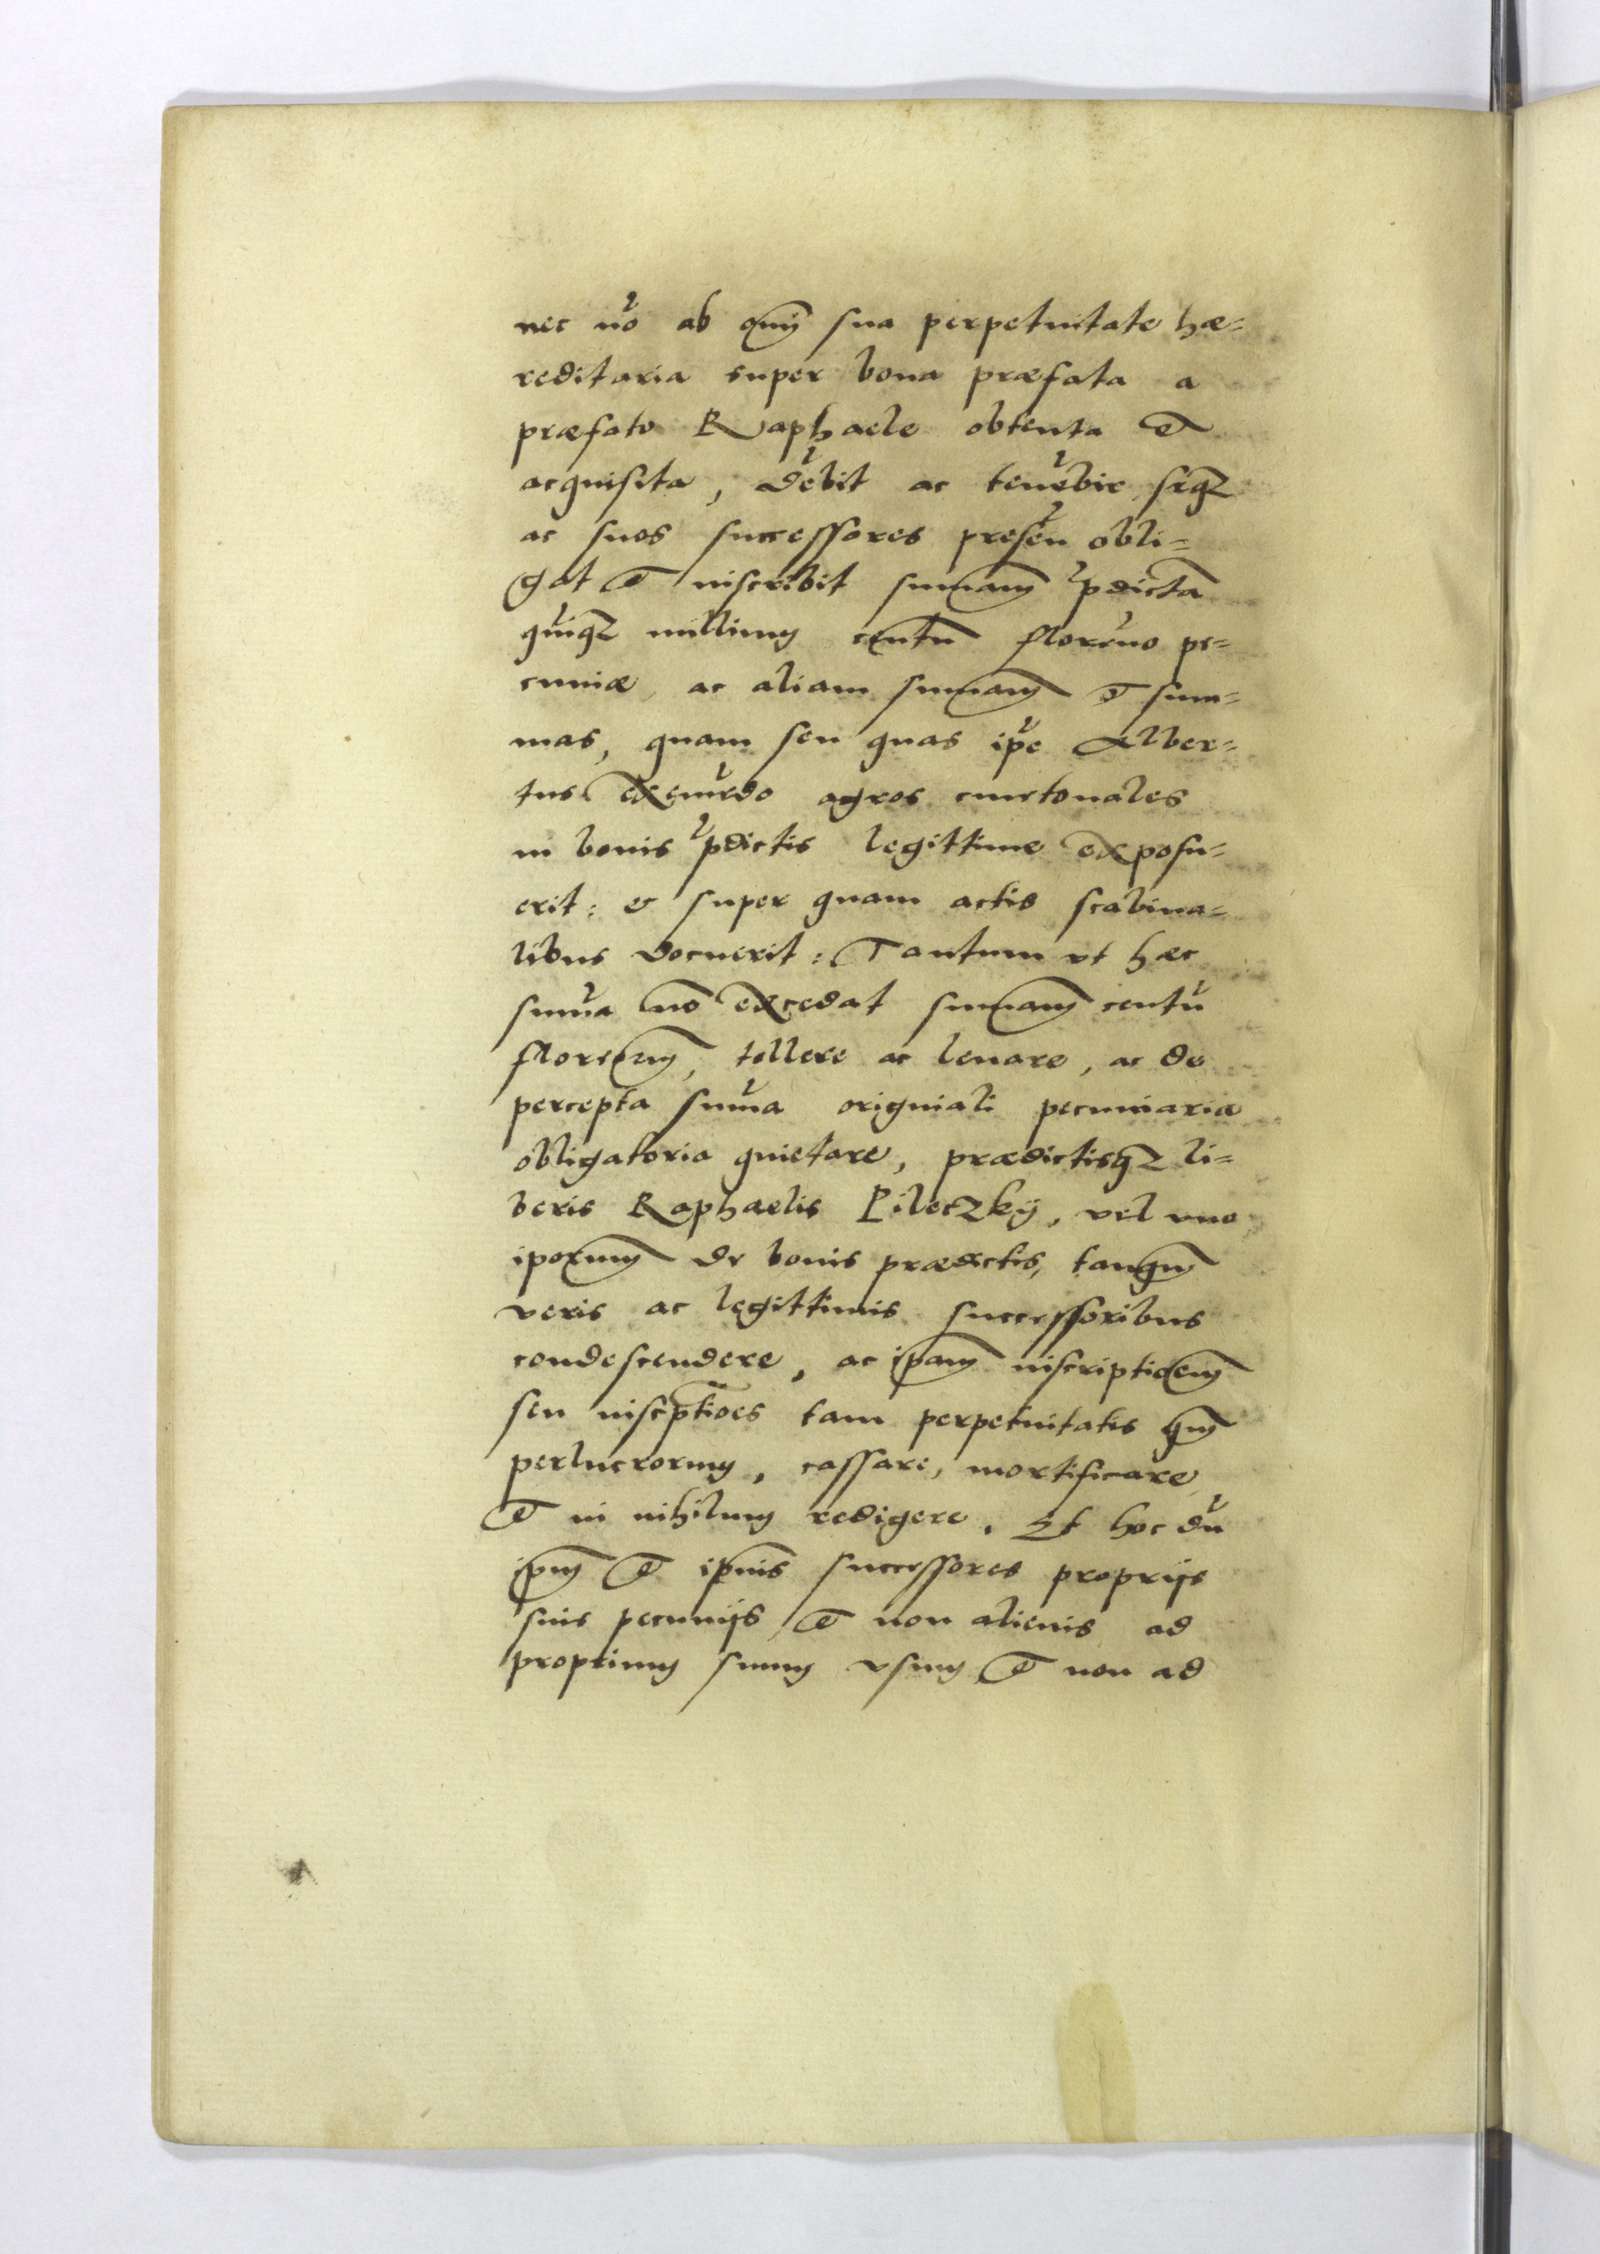 nec nō ab omī sua perpetuitate hæ=
reditaria super bona præfata a
præfato Raphaele obtenta et
acquisita, debit ac tenebit seqꝫ
ac suos successores presen obli=
gat et inscribit summam pdictā
quiqꝫ millium centū florēno pe=
cuniæ, ac aliam summam et sum=
mas, quam seu quas ipe Alber=
tus exemēdo agros cmetonales
in bonis pdictis legittime exposu=
erit: & super quam actis scabina=
libus docuerit: Tantum vt hæc
suma nō excedat summam centū
florenorum, tollere ac leuare, ac de
percepta suma originali pecuniaria
obligatoria quietare, prædictisqꝫ li=
beris Raphaelis Pileczkÿ, vel vno
iporum de bonis prædictis, tanqm
veris ac legittimis successoribus
condescendere, ac ipam inscriptioem
seu inscptioes tam perpetuitatis qm
perlucrorum, cassare, mortificare
et in nihilum redigere. Et hoc dū
ipm et ipius successores proprijs
suis pecunijs et non alienis ad
proprium suum vsum et non ad